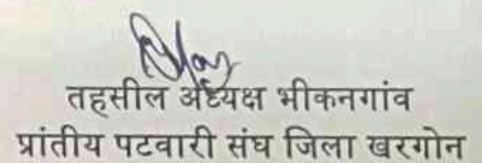 तहसील अध्यक्ष भीकनगांव
प्रांतीय पटवारी संघ जिला खरगोन